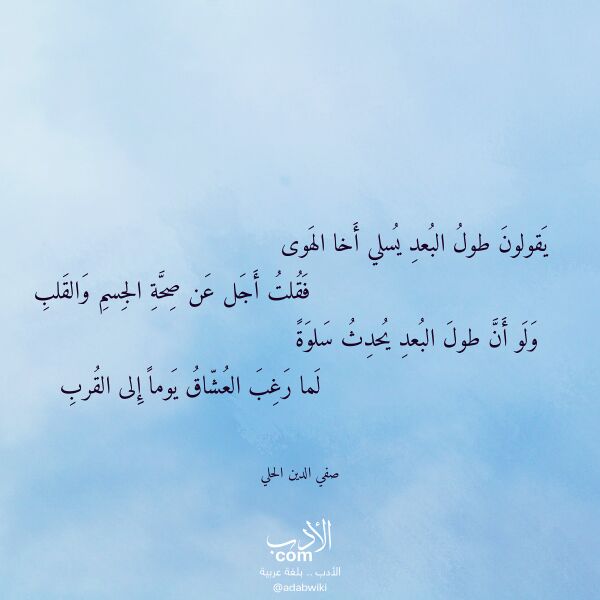 يَقولونَ طولُ البُعدِ يُسلي أَخا الهَوى
فَقُلتُ أَجَل عَن صِحَّةِ الجِسمِ وَالقَلبِ
وَلَو أَنَّ طولَ البُعدِ يُحدِثُ سَلوَةً
لَما رَغِبَ العُشّاقُ يَوماً إِلى القُربِ
صفي الدين الحلي
الأدب
com
الأدب .. بلغة عربية
@adabwiki